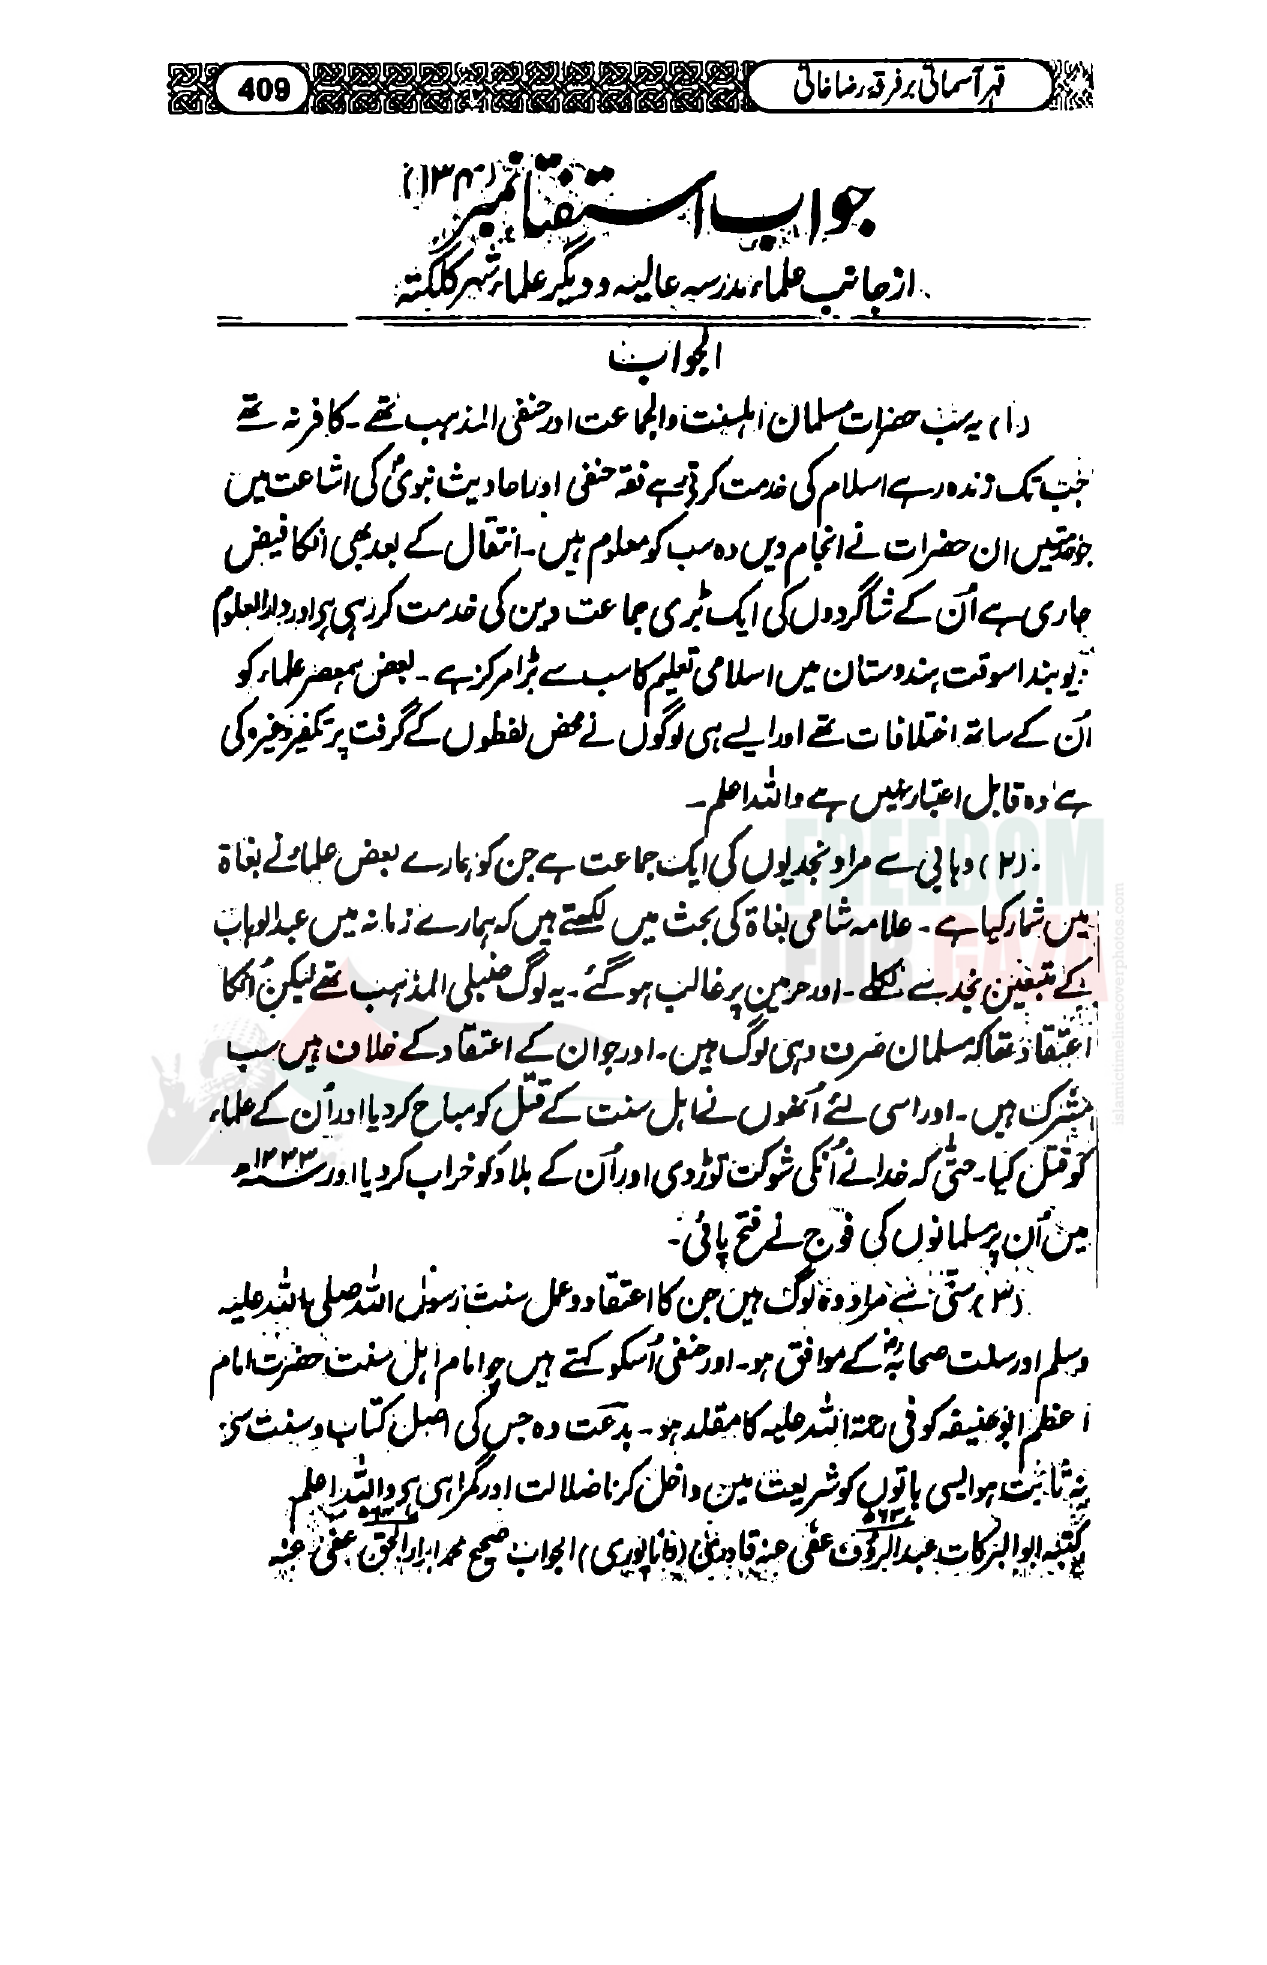 409
قہر آسمانی بر فرقہ رضاخانی
جواب استفتا نمبر (۱۳۴)
از جانب علماء مدرسہ عالیہ و دیگر علماء شہر کلکتہ
الجواب
(۱) یہ سب حضرات مسلمان اہلسنت والجماعت اور حنفی المذہب تھے۔ کافر نہ تھے
جب تک زندہ رہے اسلام کی خدمت کرتے رہے فقہ حنفی اور احادیث نبوی کی اشاعت میں
خدمتیں ان حضرات نے انجام دیں وہ سب کو معلوم ہیں۔ انتقال کے بعد بھی انکا فیض
جاری ہے اُن کے شاگردوں کی ایک بڑی جماعت دین کی خدمت کر رہی ہے اور دارالعلوم
یوبند اسوقت ہندوستان میں اسلامی تعلیم کا سب سے بڑا مرکز ہے۔ بعض ہمعصر علماء کو
اُن کے ساتھ اختلافات تھے اور ایسے ہی لوگوں نے محض لفظوں کے گرفت پر تکفیر وغیرہ کی
ہے وہ قابل اعتبار نہیں ہے واللہ اعلم۔
(۲) وہابی سے مراد نجدیوں کی ایک جماعت ہے جن کو ہمارے بعض علماء نے بغاۃ
میں شمار کیا ہے۔ علامہ شامی بغاۃ کی بحث میں لکھتے ہیں کہ ہمارے زمانہ میں عبدالوہاب
کے متبعین نجد سے نکلے۔ اور حرمین پر غالب ہو گئے۔ یہ لوگ حنبلی المذہب تھے لیکن اُنکا
اعتقاد تھا کہ مسلمان صرف وہی لوگ ہیں۔ اور جو ان کے اعتقاد کے خلاف ہیں سب
مشرک ہیں۔ اور اسی لئے اُنھوں نے اہل سنت کے قتل کو مباح کر دیا اور اُن کے علماء
کو قتل کیا۔ حتّٰی کہ خدا نے اُنکی شوکت توڑ دی اور اُن کے بلاد کو خراب کر دیا اور ۱۲۳۳ھ
میں اُن پر مسلمانوں کی فوج نے فتح پائی۔
(۳) سنّی سے مراد وہ لوگ ہیں جن کا اعتقاد و عمل سنت رسول اللہ صلی اللہ علیہ
وسلم اور سنت صحابہؓ کے موافق ہو۔ اور حنفی اُسکو کہتے ہیں جو امام اہل سنت حضرت امام
اعظم ابو حنیفہ کوفی رحمۃ اللہ علیہ کا مقلد ہو۔ بدعت وہ جس کی اصل کتاب و سنت سے
نہ ثابت ہو ایسی باتوں کو شریعت میں داخل کرنا ضلالت اور گمراہی ہے واللہ اعلم
کتبہ ابوالبرکات عبدالرؤف عفی عنہ قادری (داناپوری) الجواب صحیح محمد ابرار الحق عفی عنہ
FREEDOM
FOR GAZA
islamictimelinecoverphotos.com